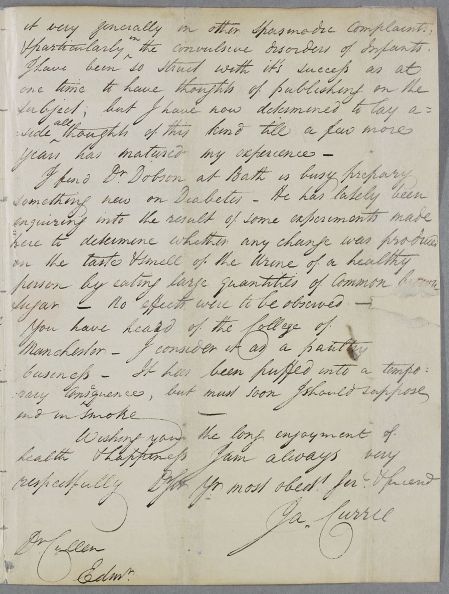 it very generally in other spasmodic complaints;
& particularly in the convulsive disorders of Infants.
I have been so struck with it's success as at
one time to have thoughts of publishing on the
subject, but I have now determined to lay a-
-side all thoughts of this kind till a few more
years has matured my experience —
I find Dr. Dobson at Bath is busy prepary
something new on Diabetes — He has lately been
enquiring into the result of some experiments made
here to determine whether any change was produced
on the taste & smell of the Urine of a healthy
person by eating large quantities of Common brown
sugar — No effects were to be observed —
You have heard of the College of
Manchester — I consider it as a paultry
business — It has been puffed into a tempo-
rary consequence, but must soon I should suppose
end in smoke —
Wishing you the long enjoyment of
health & happiness I am always very
respectfully Dr Sir Yr. most obedt. Servt. & friend
Ja. Currie
Dr Cullen
Edinr.